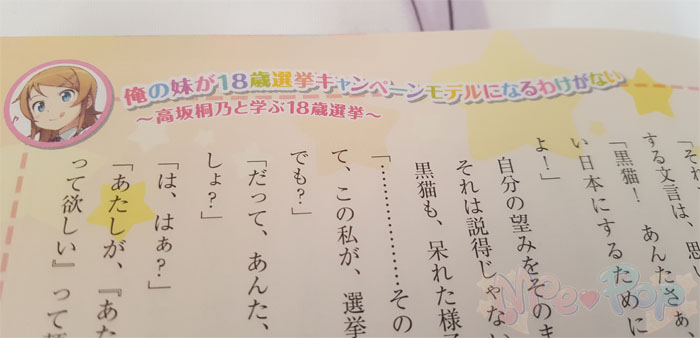 俺の妹が18歳選挙キャンペーンモデルになるわけがない
～高坂桐乃と学ぶ18歳選挙～
「それ
する文言は、思
「黒猫！　あんたさぁ、
い日本にするために
よ！」
自分の望みをそのま
それは説得じゃな
黒猫も、呆れた様子
「………………その
て、この私が、選挙
でも？」
「だって、あんた、
しょ？」
「は、はぁ？」
「あたしが、『あた
って欲しい』って
Nice♥Pop